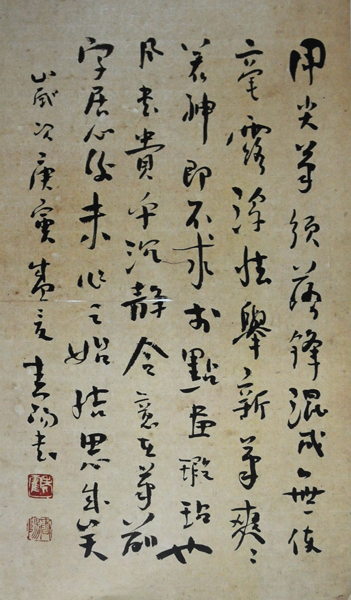 用尖筆須落鋒混成無使
毫露浮怯舉新筆爽〻
若神即不求於點畫瑕玷也
凡書貴乎沉靜令意在筆前
字居心後未作之始結思成矣
歲次庚寅 書